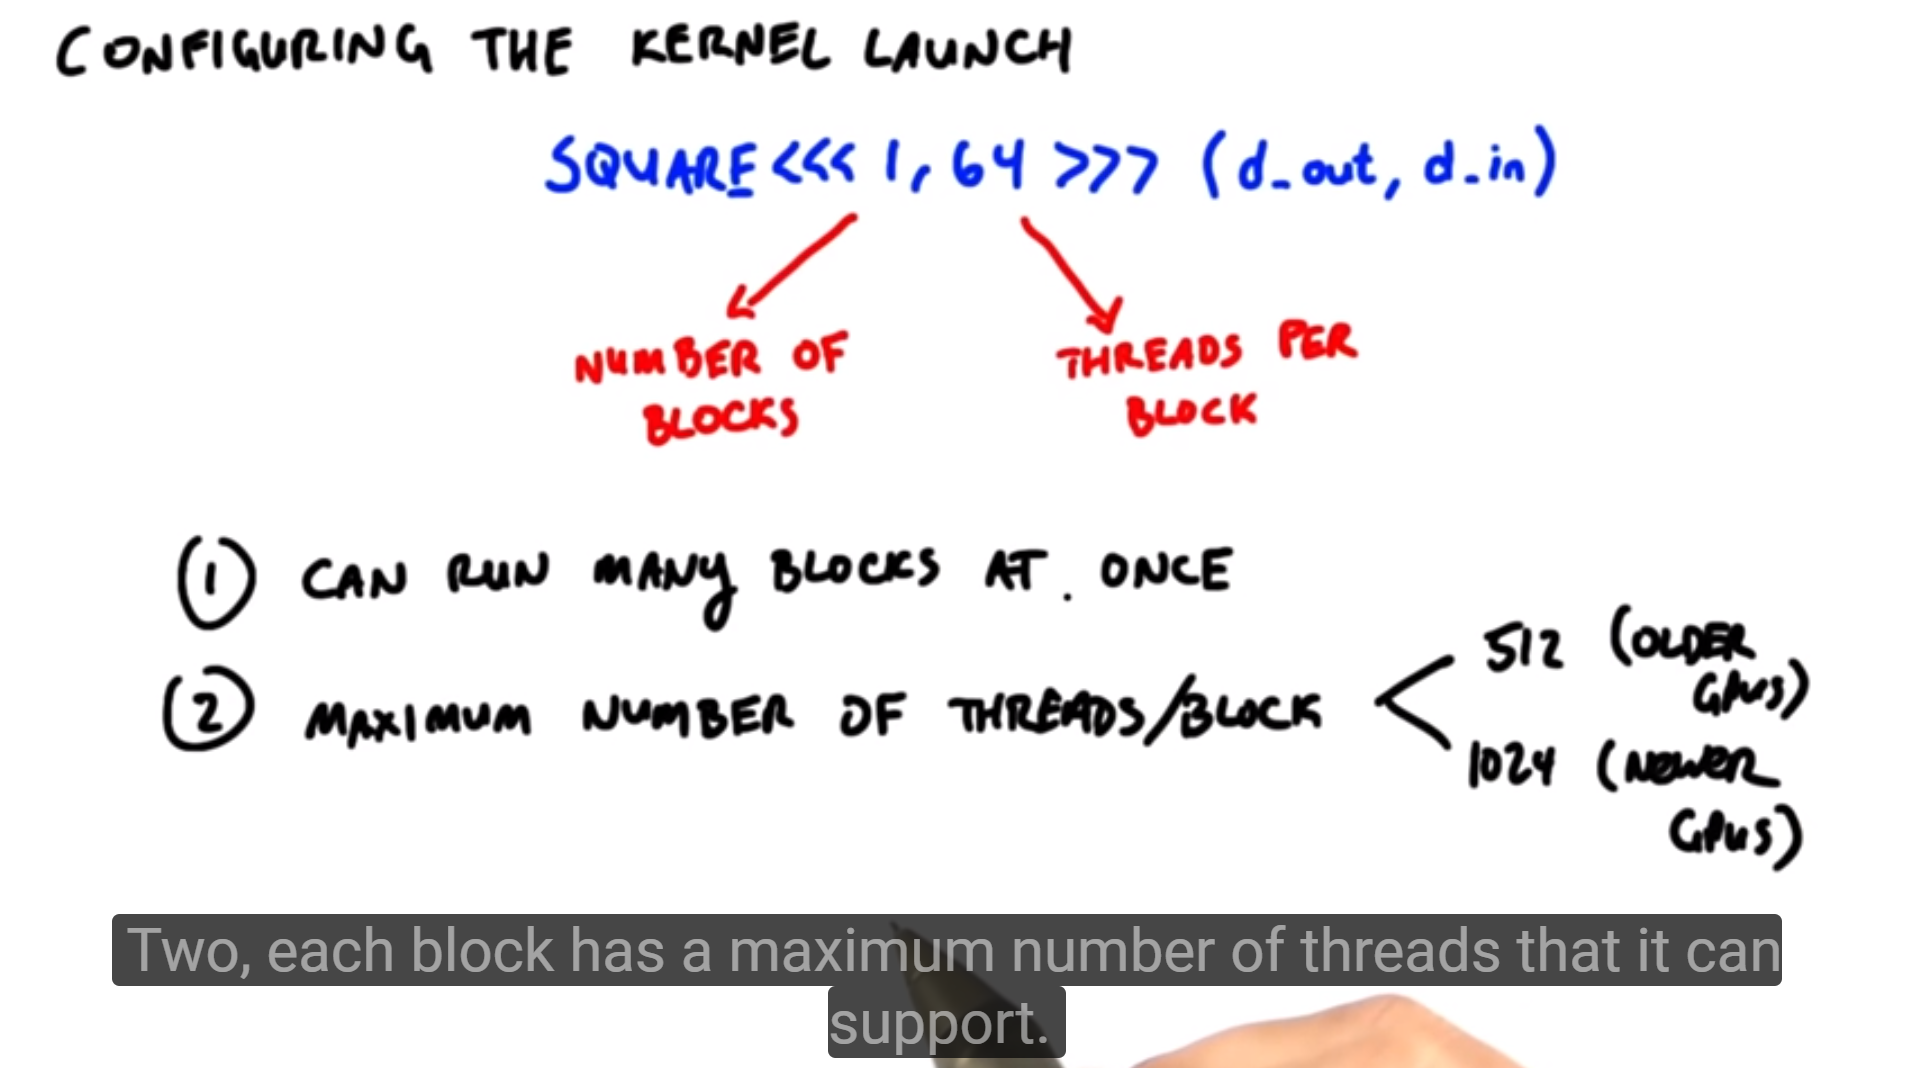 CONFIGURING THE KERNEL LAUNCH
SQUARE<<< 1, 64 >>> (d_out, d_in)
NUMBER OF
BLOCKS
THREADS PER
BLOCK
1 CAN RUN MANY BLOCKS AT. ONCE
2 MAXIMUM NUMBER OF THREADS/BLOCK
512 (OLDER
GPUS)
1024 (NEWER
GPUS)
Two, each block has a maximum number of threads that it can
support.